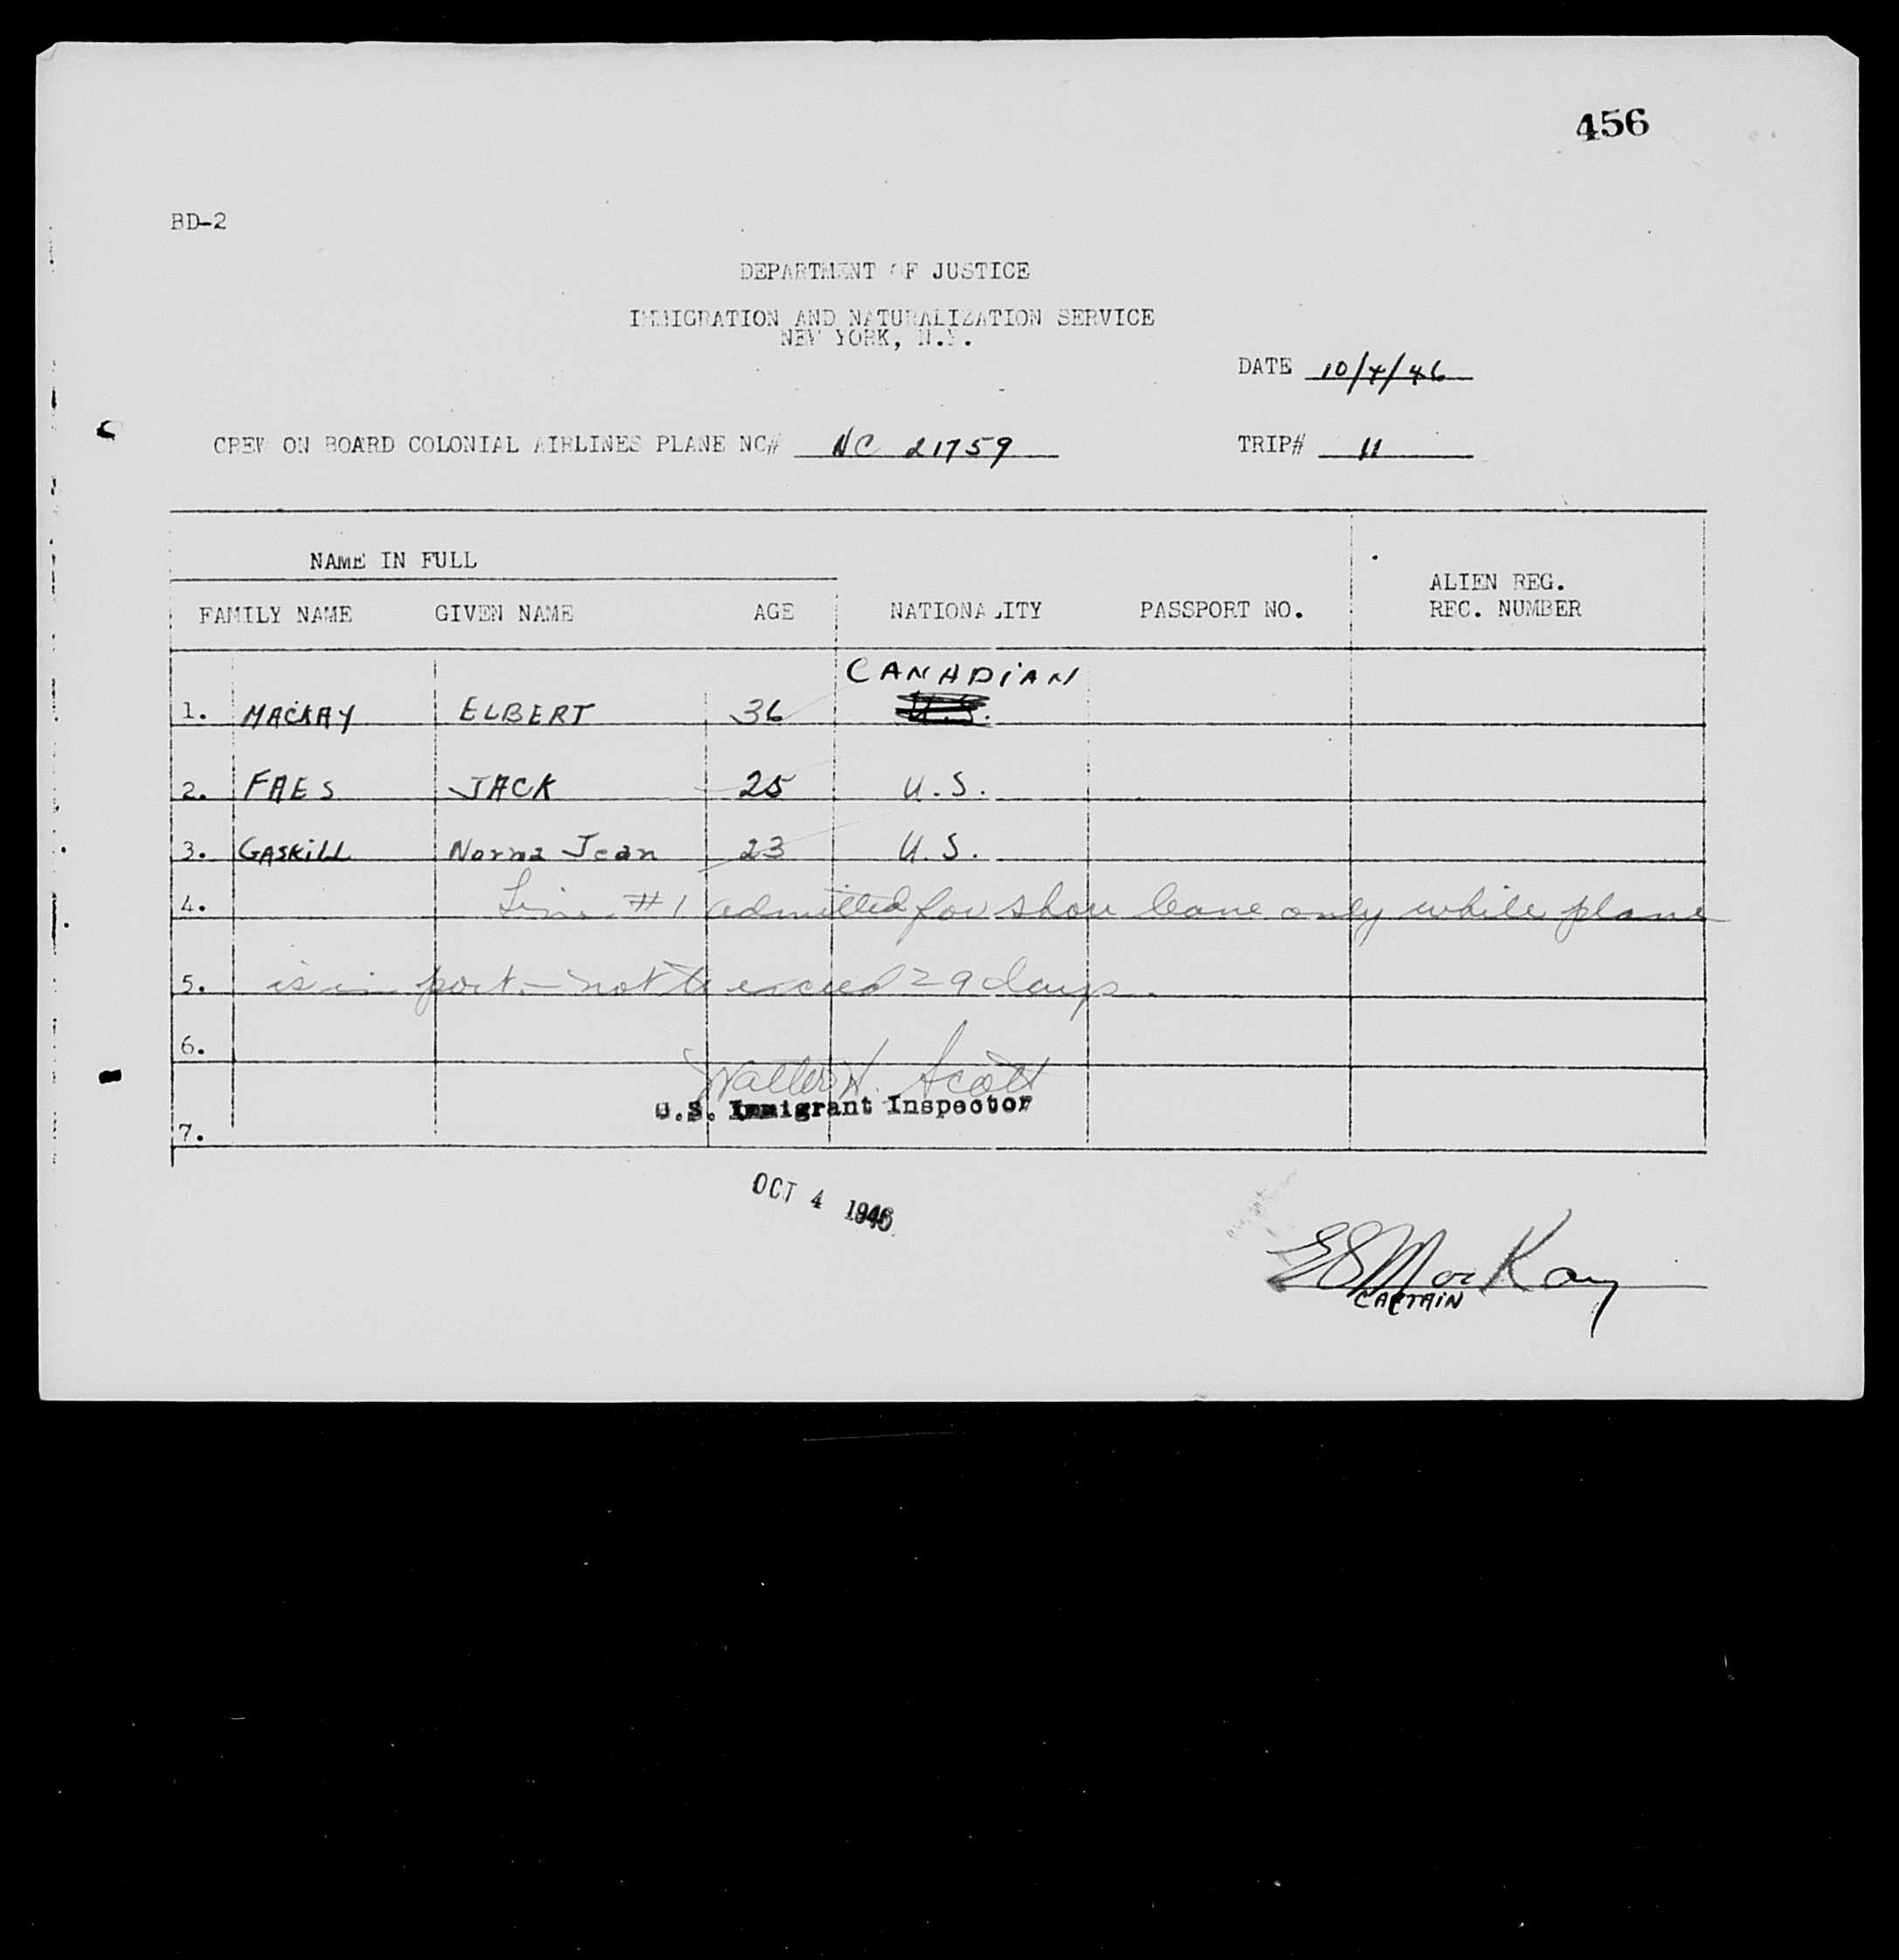 456
BD-2
DEPARTMENT OF JUSTICE
IMMIGRATION AND NATURALIZATION SERVICE
NEW YORK, N.Y.
DATE 10/4/46
CREW ON BOARD COLONIAL AIRLINES PLANE NC# NC 21759 TRIP# 11
NAME IN FULL
FAMILY NAME GIVEN NAME AGE NATIONALITY PASSPORT NO. ALIEN REG. REC. NUMBER
CANADIAN
1. MACKAY ELBERT 36 U.S.
2. FAES JACK 25 U.S.
3. GASKILL Norma Jean 23 U.S.
4. Line #1 admitted for shore leave only while plane
5. is in port - not to exceed 29 days.
6.
Walter H. Scott
U.S. Immigrant Inspector
7.
OCT 4 1946
E S MacKay
CAPTAIN